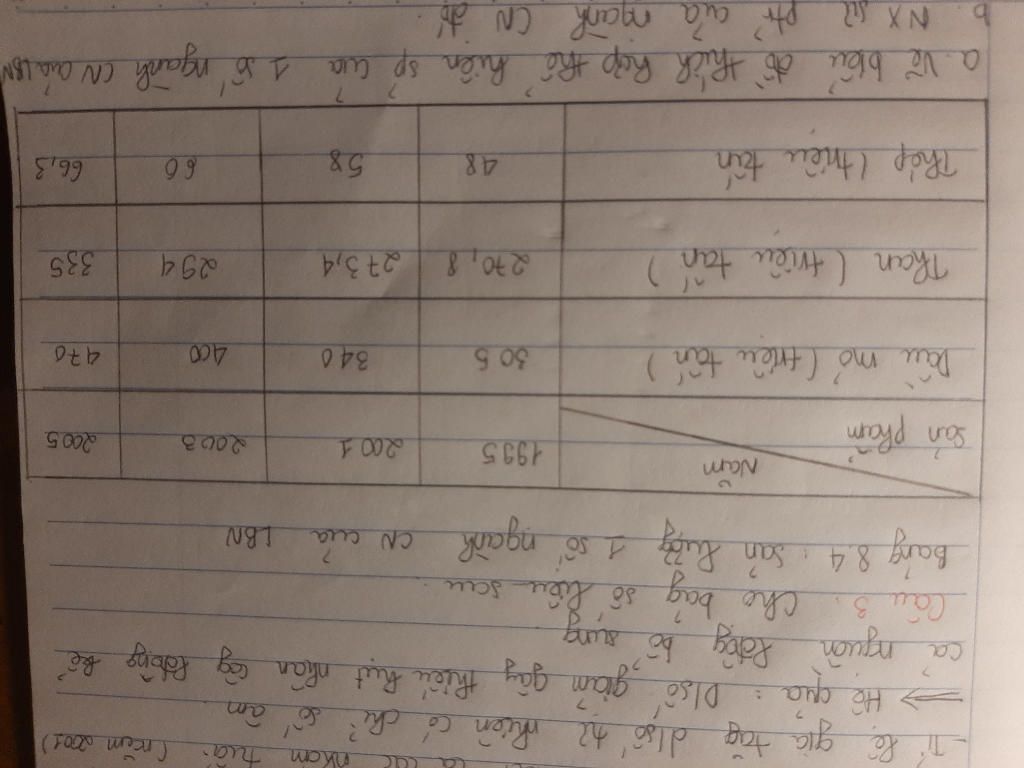 (năm 2005)
- Tỉ lệ gia tăg d/số tự nhiên có chỉ số âm
→ Hệ quả: D/số giảm gây thiếu hụt nhân côg lđộng kể
cả nguồn lđộg bổ sung
Câu 3. Cho bảg số liệu sau:
Bảng 8.4: Sản lượg 1 số ngành CN của LBN
Năm
Sản phẩm 1995 2001 2003 2005
Dầu mỏ (triệu tấn) 305 340 400 470
Than (triệu tấn) 270,8 273,4 294 335
Thép (triệu tấn 48 58 60 66,3
a. Vẽ biểu đồ thích hợp thể hiện sp của 1 số ngành CN của LBN
b. NX sự pt của ngành CN đó